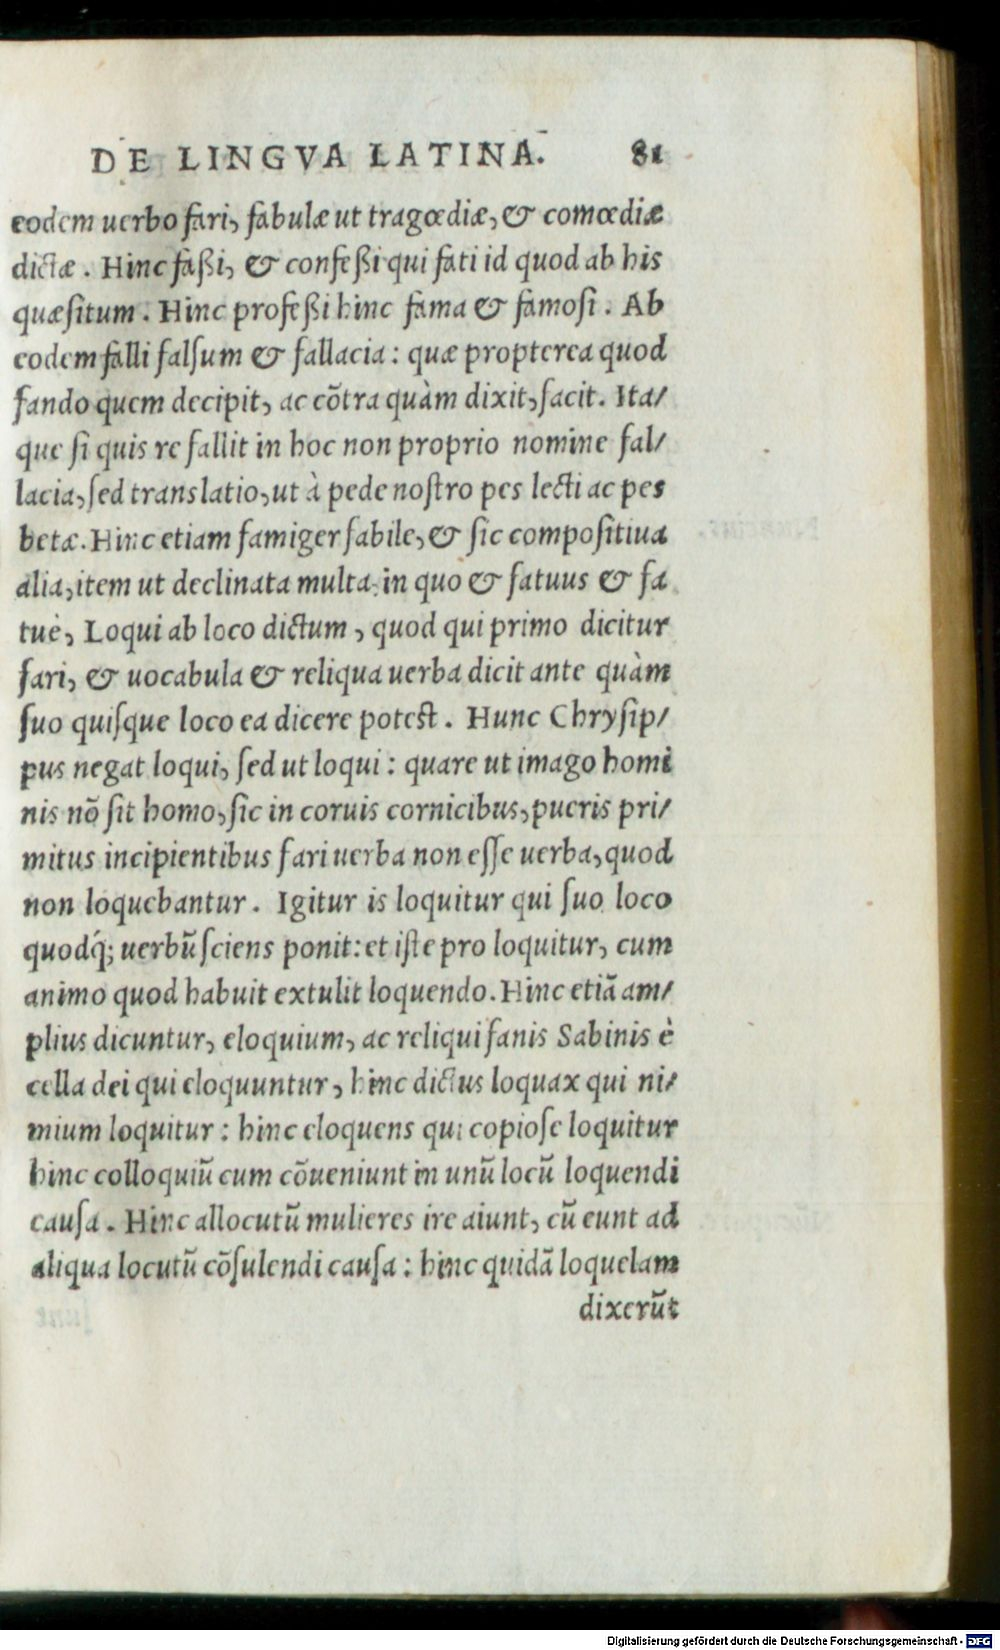 DE LINGVA LATINA. 81
eodem uerbo fari, fabulæ ut tragœdiæ, & comœdiæ
dictæ. Hinc faßi, & confeßi qui fati id quod ab his
quæsitum. Hinc profeßi hinc fama & famosi. Ab
eodem falli falsum & fallacia: quæ propterea quod
fando quem decipit, ac cõtra quàm dixit, facit. Ita/
que si quis re fallit in hoc non proprio nomine fal/
lacia, sed translatio, ut à pede nostro pes lecti ac pes
betæ. Hinc etiam famiger fabile, & sic compositiua
alia, item ut declinata multa: in quo & fatuus & fa
tuè, Loqui ab loco dictum, quod qui primo dicitur
fari, & uocabula & reliqua uerba dicit ante quàm
suo quisque loco ea dicere potest. Hunc Chrysip/
pus negat loqui, sed ut loqui: quare ut imago homi
nis nõ sit homo, sic in coruis cornicibus, pueris pri/
mitus incipientibus fari uerba non esse uerba, quod
non loquebantur. Igitur is loquitur qui suo loco
quodq́; uerbũ sciens ponit: et iste pro loquitur, cum
animo quod habuit extulit loquendo. Hinc etiã am/
plius dicuntur, eloquium, ac reliqui fanis Sabinis è
cella dei qui eloquuntur, hinc dictus loquax qui ni/
mium loquitur: hinc eloquens qui copiose loquitur
hinc colloquiũ cum cõueniunt in unũ locũ loquendi
causa. Hinc allocutũ mulieres ire aiunt, cũ eunt ad
aliqua locutũ cõsulendi causa: hinc quidã loquelam
dixerũt
Digitalisierung gefördert durch die Deutsche Forschungsgemeinschaft - DFG